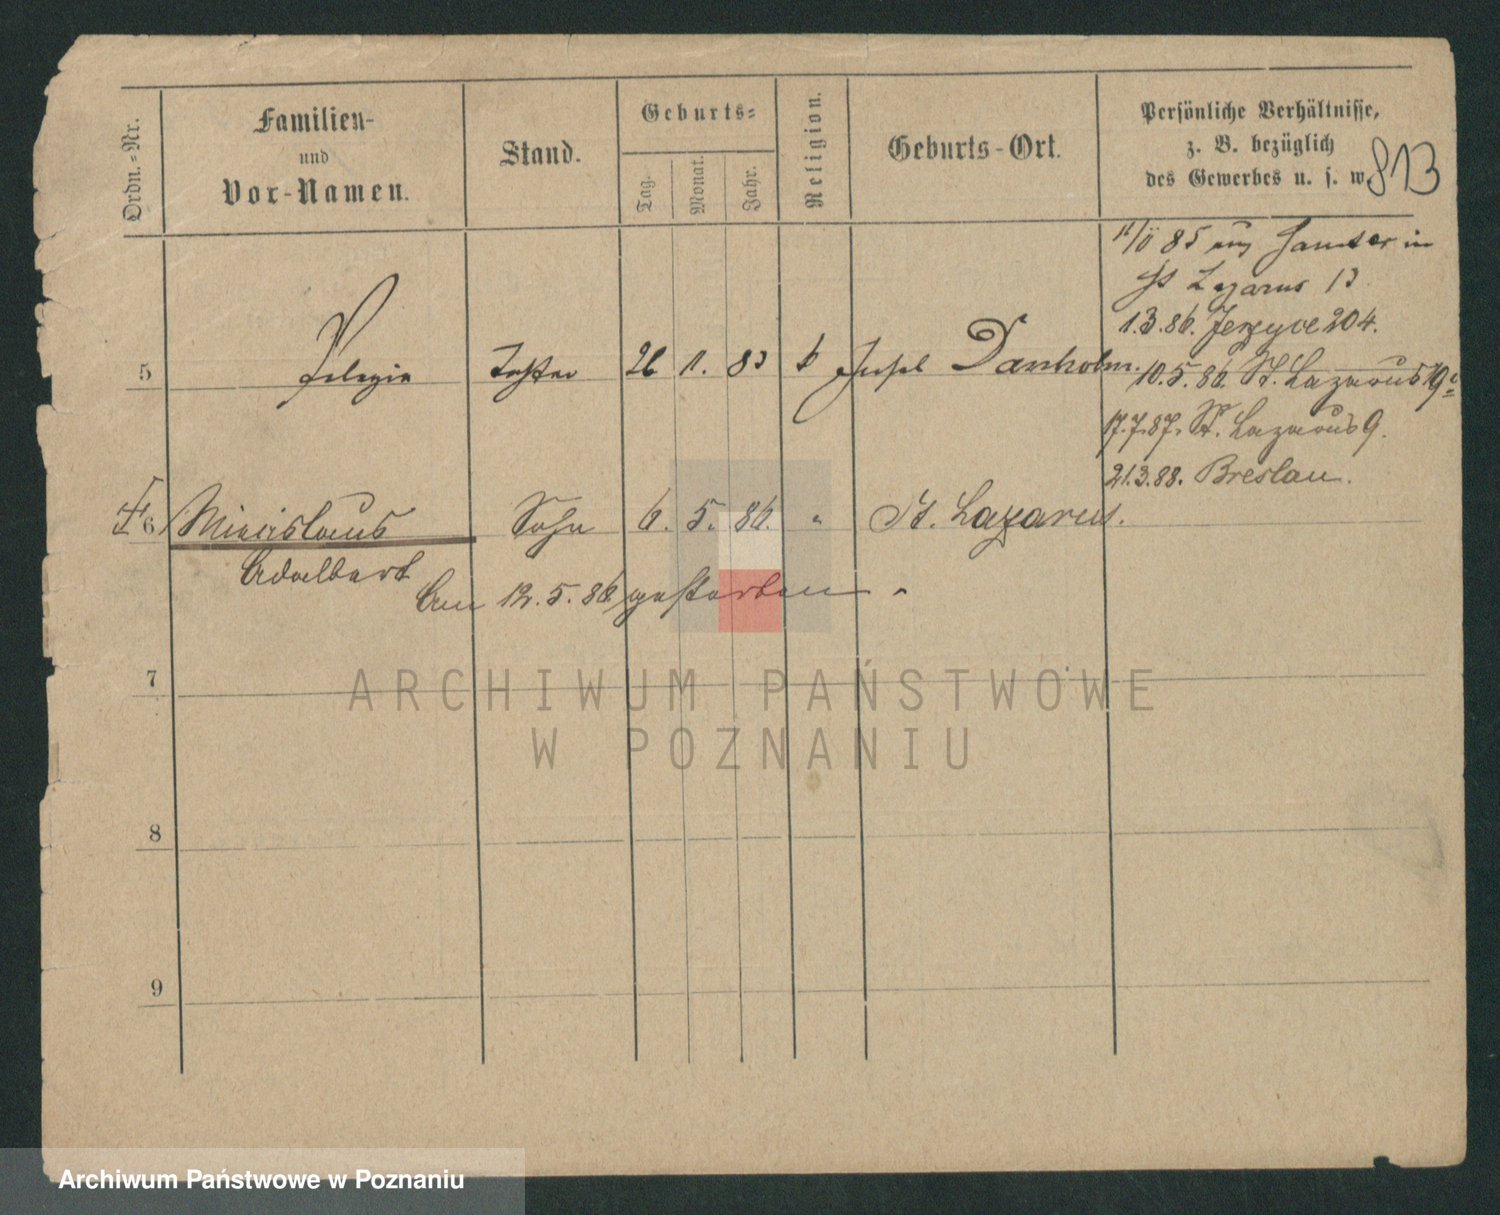 Ordn.-Nr.
Familien-
und
Vor-Namen.
Stand.
Geburts-
Tag.
Monat.
Jahr.
Religion.
Geburts-Ort.
Persönliche Verhältnisse,
z. B. bezüglich
des Gewerbes u. s. w.
813
85 aus Samter in
St Lazarus 13
1.3.86. Jerzyce 204.
5 Pelagia Tochter 26 1. 83 k Insel Danholm.
10.5.86. St. Lazarus 19
17.7.87. St. Lazarus 9.
21.3.88. Breslau.
6 Miecislaus Sohn 6. 5. 86. " St. Lazarus.
Adalbert
Am 12.5.86 gestorben.
7
8
9
ARCHIWUM PAŃSTWOWE
W POZNANIU
Archiwum Państwowe w Poznaniu